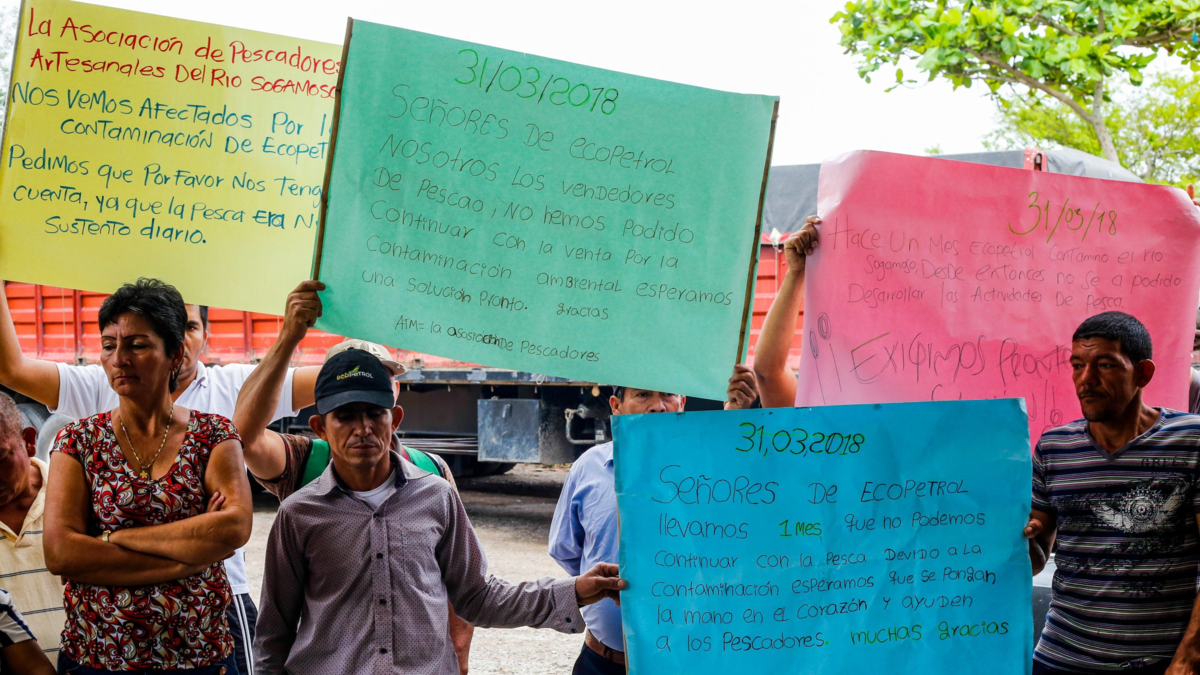 La Asociación de Pescadores
Artesanales Del Rio Sogamoso
Nos vemos Afectados Por l
contaminación DE Ecopet
Pedimos que Porfavor Nos Teng
cuenta, ya que la Pesca Era N
sustento diario.
31/03/2018
Señores de ecopetrol
Nosotros los vendedores
De Pescao, no hemos podido
continuar con la venta por la
contaminación ambiental esperamos
una solución Pronto. gracias
ATM= la asosiación De Pescadores
31/03/18
Hace Un Mes Ecopetrol contamino el rio
Sogamoso Desde entonces no se a podido
Desarrollar las Actividades De Pesca
¡¡ Exigimos Pronta
ecopetrol
31,03,2018
Señores De Ecopetrol
llevamos 1 mes que no podemos
continuar con la pesca Devido a la
contaminación esperamos que se Pongan
la mano en el corazón y ayuden
a los Pescadores. muchas gracias